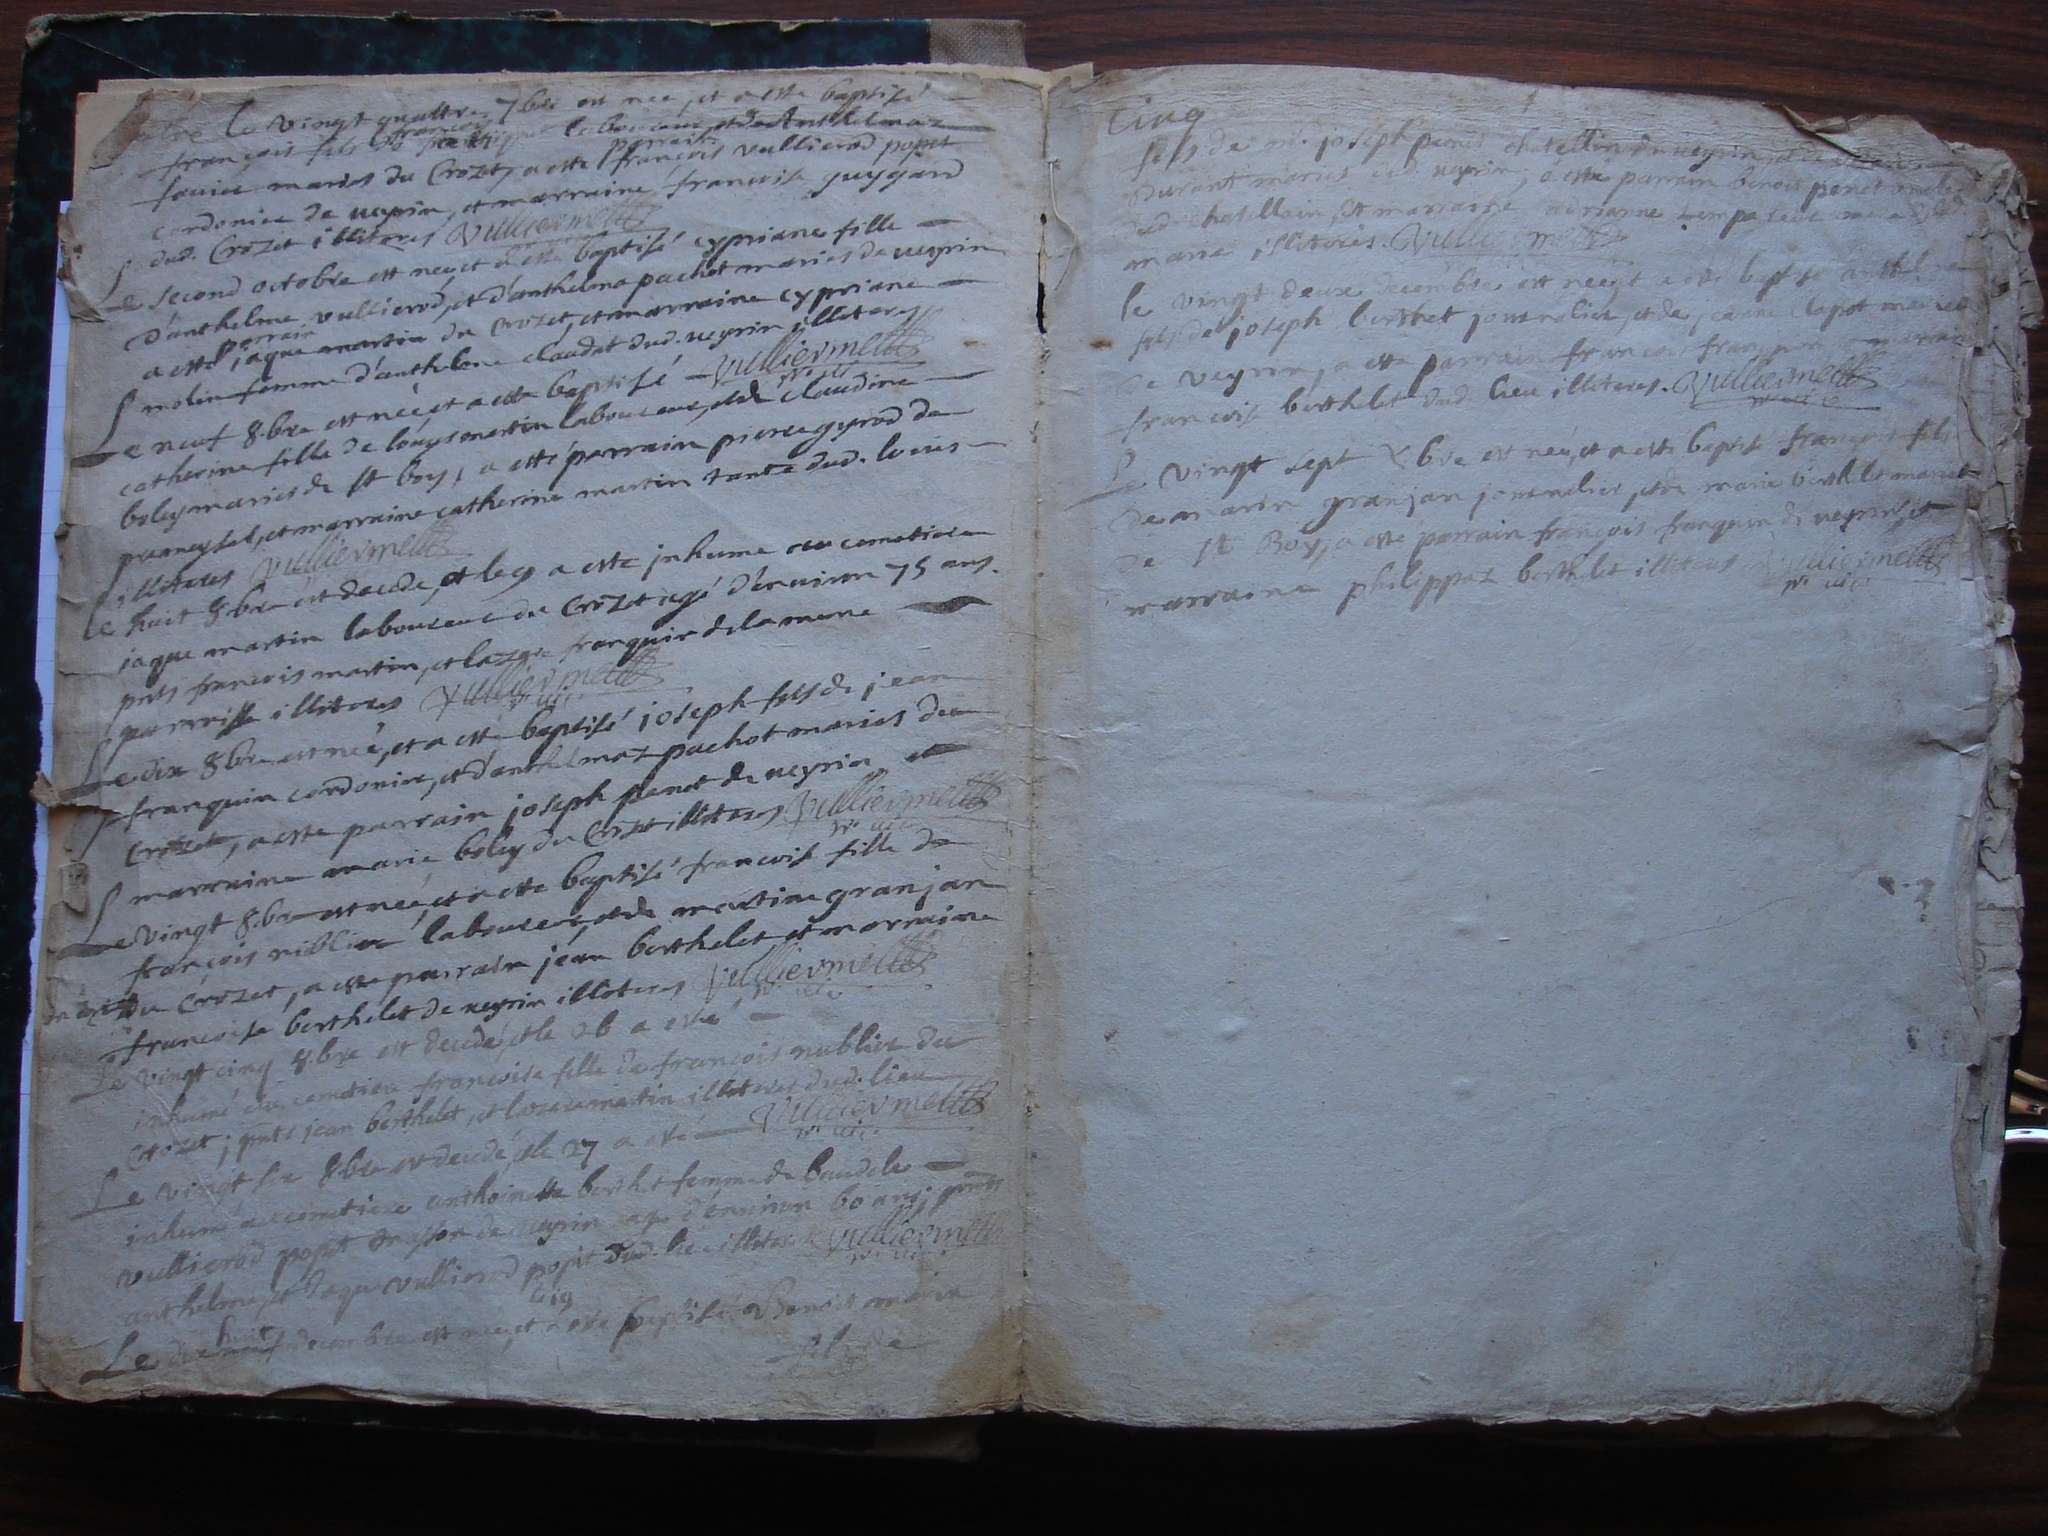 Le vingt quattre 7bre est nee, et a este baptisé
françois fils de françois laboureur, et de Anthelmaz
favier maries du Crozet, a este parrain françois vullierod popet
cordonier de veyrin, et marraine françoise guygard
dud. Crozet illiteres Vulliermet
Le second octobre est nee, et a esté baptisé cypriane fille
d'anthelme vullierod, et d'anthelma pachot maries de veyrin
a esté parrain jaque martin du Crozet, et marraine cypriane
molin femme d'anthelme claudat dud. veyrin illiteres
Vulliermet
Le neuf 8.bre est née et a esté baptisé
catherine fille de louys martin laboureur, et de claudine
boley maries de st boys, a esté parrain pierre gyrod de
premeysel, et marraine catherine martin tante dud. louis
illiteres Vulliermet
Le huit 8.bre est decede, et le 9 a este inhume au cemetiere
jaque martin laboureur du Crozet agé d'environ 75 ans.
pnts francois martin, et lazare franquin de la mesme
parroisse illiteres Vulliermet
Le dix 8bre est né, et a esté baptisé joseph fils de jean
franquin cordonier, et d'anthelmaz pachot maries du
Crozet, a este parrain joseph penet de veyrin et
marraine marie boley du Crozet illiteres Vulliermet
Le vingt 8.bre est née, et a este baptisé francoise fille de
françois laboureur, et de martine granjan
du Crozet, a este parrain jean berthelet et marraine
francoise berthelet de veyrin illiteres Vulliermet
Le vingt cinq 8.bre est decedé, et le 26 a esté
inhumé au cemetiere francoise fille de francois du
Crozet; pnts jean berthelet, et lazare martin illiteres dud. lieu
Vulliermet
Le vingt six 8bre est decedé, et le 27 a esté
inhumé au cemetiere anthoinette berthet femme de baudele
vullierod popet masson de veyrin agé d'environ 60 ans; pnts
anthelme, et Jaque vullierod popet dud. lieu illiteres Vulliermet
Le dix huit decembre est nee, et le 19 a esté baptisé Benoit marin
fils de
Cinq
fils de m. joseph penet chatellin de veyrin
Durant maries dud. veyrin, a esté parrain benoit penet oncle
dud. chatellain, et marraine adrianne
illiteres. Vulliermet
le vingt deux decembre est nee, et a esté baptisé anthelme
fils de joseph berthet journalier, et de jeanne clapot maries
de veyrin, a este parrain francois franquin
francoise berthelet dud. lieu illiteres. Vulliermet
Le vingt sept Xbre est né, et a esté baptisé françois fils
de marin granjan journalier, et de marie berthelet maries
de St Boys, a esté parrain françois franquin de veyrin, et
marraine philippaz berthelet illiteres Vulliermet